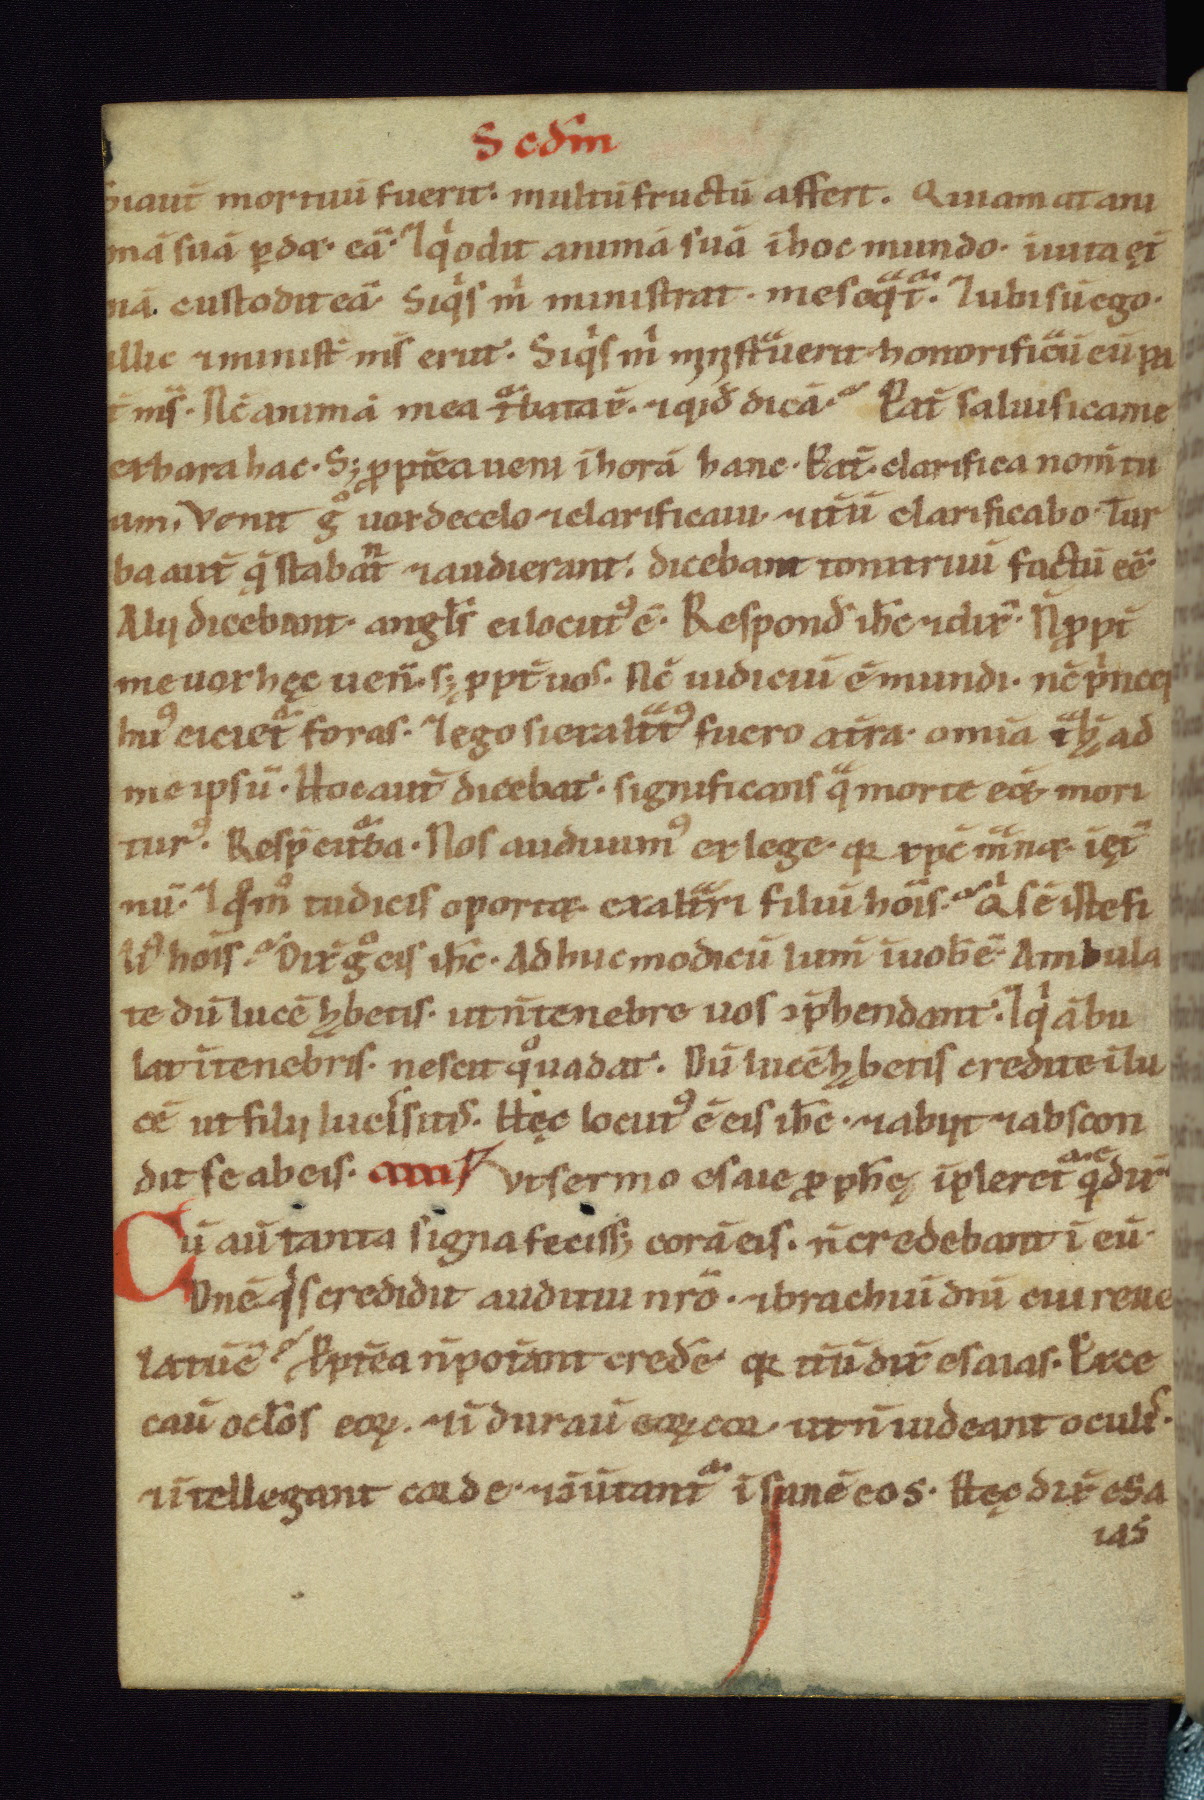 Scdm̄
Siaut̄ mortuū fuerit. multū fructū affert. Quiamat ani
mā suā ꝑdæ. eā. ⁊qͥ odit animā suā ihoc mundo. īuitā ęt̄
nā. custodit eā. Siqͥs m̄ ministrat. me seqͣt̄. ⁊ubi sū ego.
illic ⁊minist̄ m̄s erit. Siqͥs m̄ ministͣuerit honorificāu eū pa
t̄ m̄s. Nc̄ anima mea tͣbata ē. ⁊qid dicā. Pat̄ saluifica me
exhora hac. Sꝫ ꝓpt̄ea ueni ihorā hanc. Pat̄. clarifica nom̄ tu
um. Venit gͦ uox de celo ⁊clarificaui. ⁊it̄ū clarificabo. Tur
ba aut̄ q̄ stabat ⁊audierant. dicebant tonitruū factū eē.
Alij dicebant. angl̄s ei locutꝰ ē. Respond̄ ih̄c ⁊dix̄. N̄ ꝓpt̄
me uox hęc uen̄. sꝫ ꝓpt̄ uos. Nc̄ iudiciū ē mundi. nc̄ pͥncep
huiꝰ eiciet̄ foras. ⁊ego si exaltatꝰ fuero at̄ra. omīa tͣhā ad
me ipsū. Hoc aut̄ dicebat. significans qͣ morte eēt mori
turꝰ. Resp̄ ei tͬba. Nos audiuimꝰ ex lege. qꝛ xp̄c manæ īęt̄
nū. ⁊qͦmͦ tu dicis oportæ exaltari filiū hōis. Qͥs ē iste fi
liꝰ hōis. Dix̄ gͦ eis ih̄c. Adhuc modicū lum̄ īuob̄ ē. Ambula
te dū lucē ħbetis. ut n̄ tenebre uos ꝯp̄hendant. ⁊qͥ ābu
lat ītenebris. nescit qͦ uadat. Dū lucē ħbetis credite ilu
cē ut filij lucis sitis. Hęc locutꝰ ē eis ih̄c. ⁊abijt ⁊abscon
dit se ab eis. Vt sermo esaie ꝓph̄ę īpleret̄ qͤdix̄
Cū aū tanta signa fecissꝫ corā eis. n̄ credebant ī eū.
Dn̄e qͥs credidit auditui nr̄o. ⁊brachiū dn̄i cui reue
latū ē. Ꝓpt̄ea n̄ pot̄ant cred̄e qꝛ it̄ū dix̄ esaias. Exce
cau ocl̄os eoꝝ. ⁊īdurau eoꝝ cor ut n̄ uideant oculis.
⁊ītellegant corde. ⁊ꝯūtant̄ ⁊sanē eos. Hęc dix̄ esa
ias